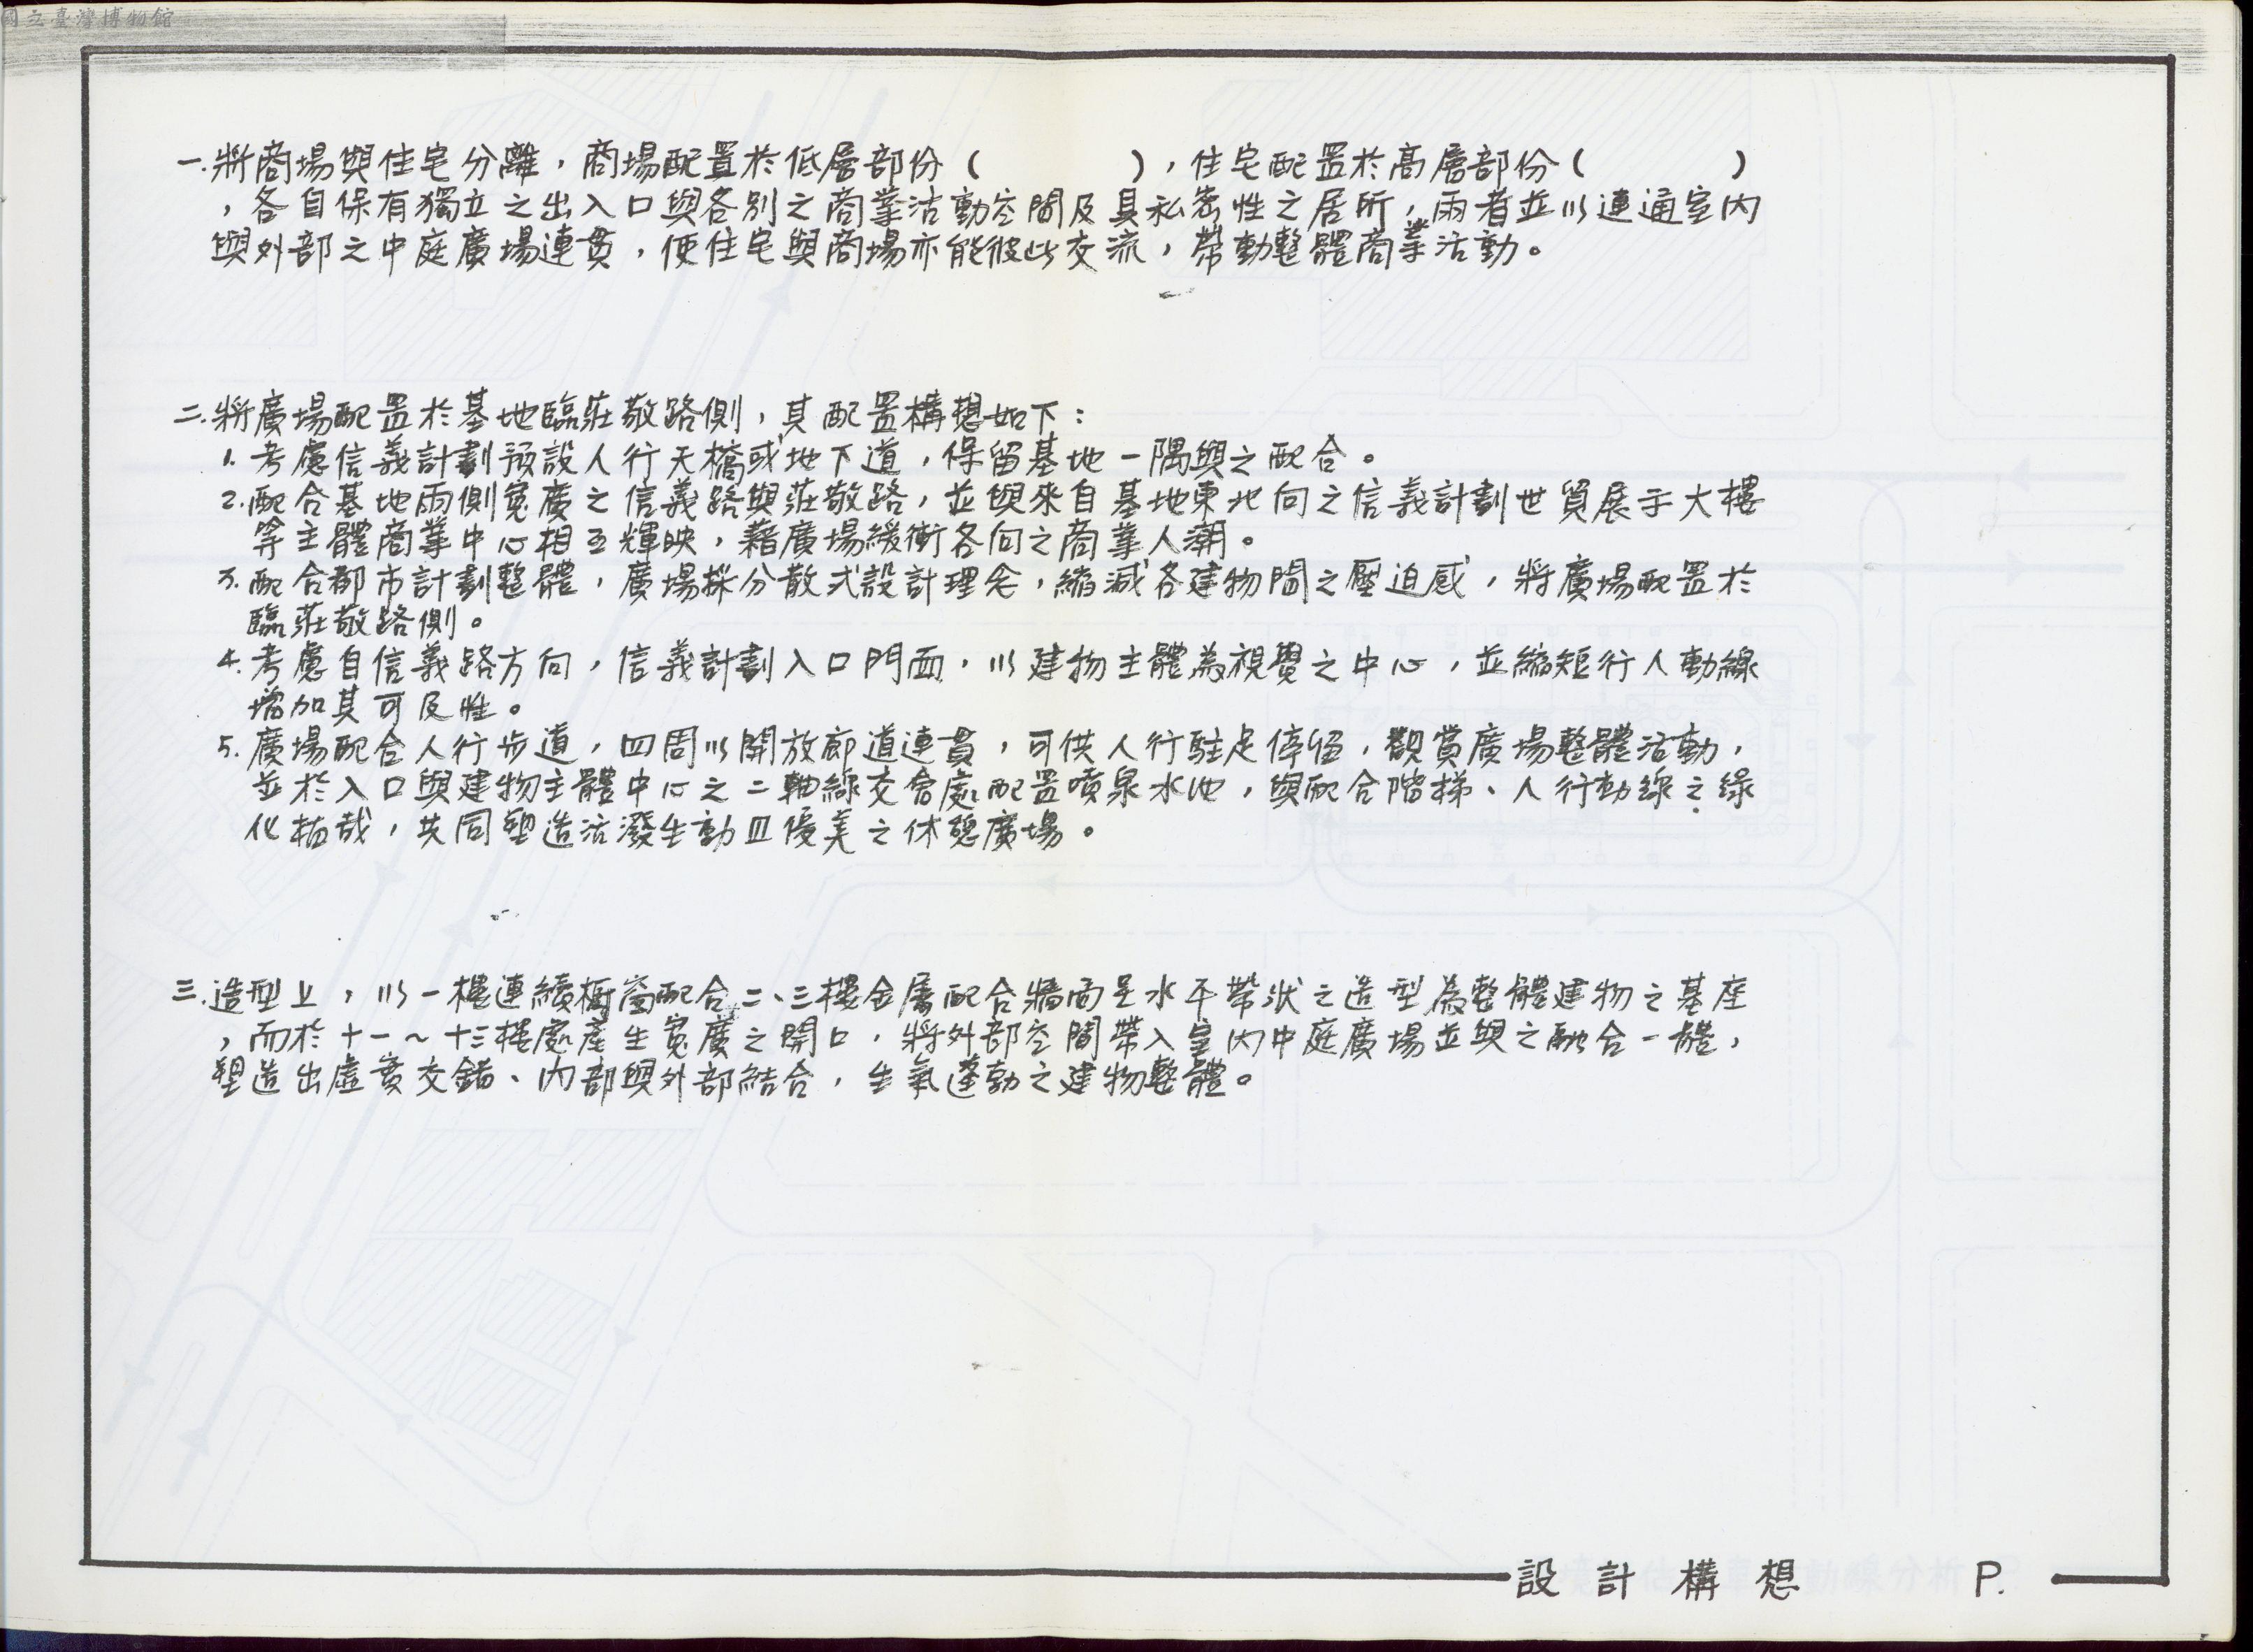 國立臺灣博物館
一.將商場與住宅分離，商場配置於低層部份（　　　），住宅配置於高層部份（　　　）
，各自保有獨立之出入口與各別之商業活動空間及具私密性之居所，兩者並以連通室內
與外部之中庭廣場連貫，使住宅與商場亦能彼此交流，帶動整體商業活動。
二.將廣場配置於基地臨莊敬路側，其配置構想如下：
1.考慮信義計劃預設人行天橋或地下道，保留基地一隅與之配合。
2.配合基地兩側寬廣之信義路與莊敬路，並與來自基地東北向之信義計劃世貿展示大樓
等主體商業中心相互輝映，藉廣場緩衝各向之商業人潮。
3.配合都市計劃整體，廣場採分散式設計理念，縮減各建物間之壓迫感，將廣場配置於
臨莊敬路側。
4.考慮自信義路方向，信義計劃入口門面，以建物主體為視覺之中心，並縮短行人動線
增加其可及性。
5.廣場配合人行步道，四周以開放廊道連貫，可供人行駐足停留，觀賞廣場整體活動，
並於入口與建物主體中心之二軸線交會處配置噴泉水池，與配合階梯、人行動線之綠
化植栽，共同塑造活潑生動且優美之休憩廣場。
三.造型上，以一樓連續櫥窗配合二、三樓金屬配合牆面呈水平帶狀之造型為整體建物之基座
，而於十一～十三樓處產生寬廣之開口，將外部空間帶入室內中庭廣場並與之融合一體，
塑造出虛實交錯、內部與外部結合，生氣蓬勃之建物整體。
設計構想　P.